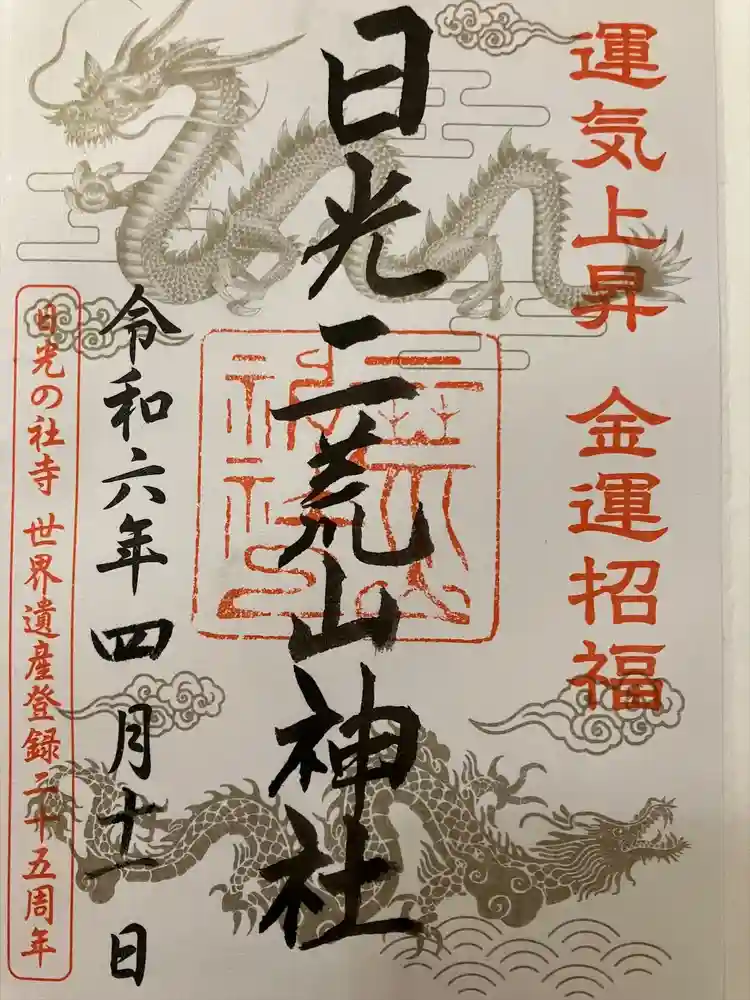 運気上昇 金運招福
日光二荒山神社
令和六年四月十一日
日光の社寺 世界遺産登録二十五周年